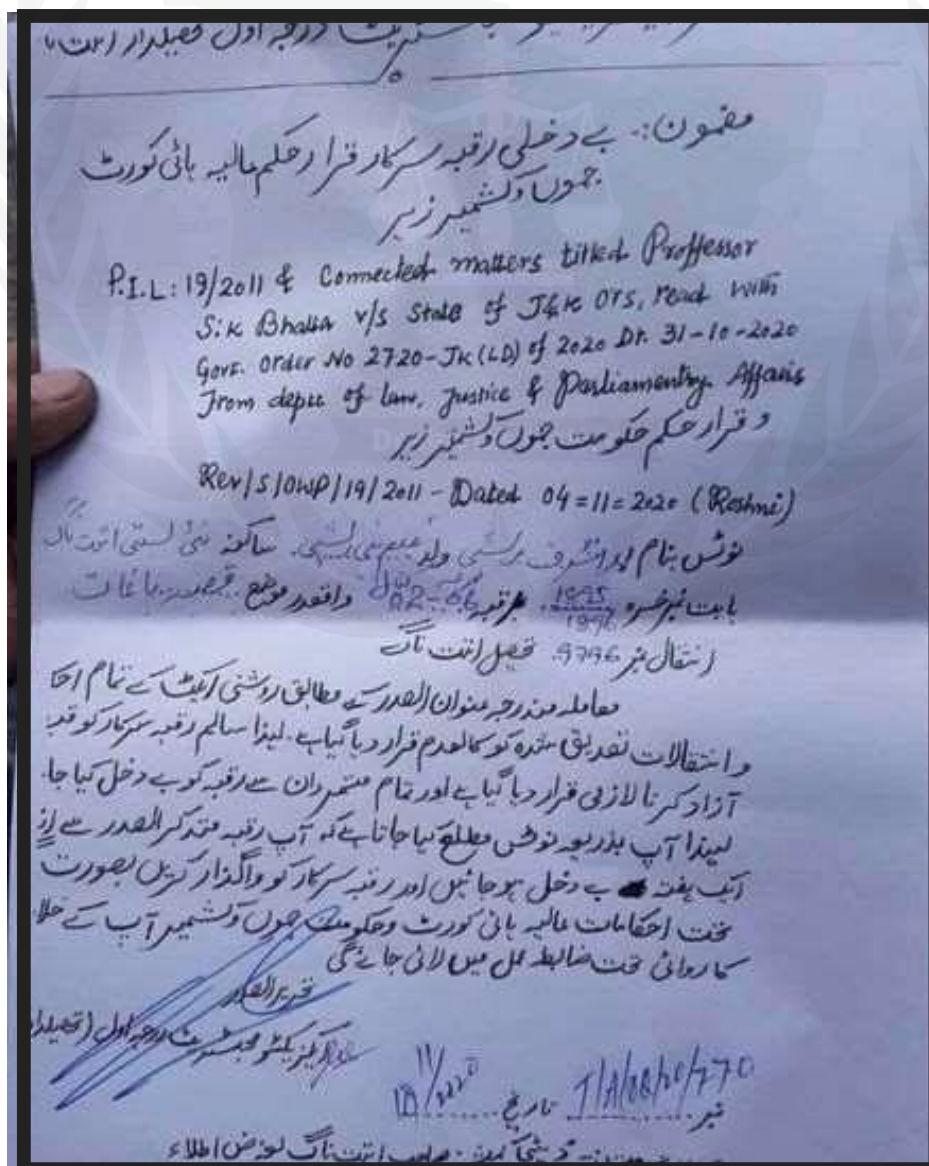 درجہ اول تحصیلدار
مضمون:۔ بے دخلی رقبہ سرکار قرار حکم عالیہ ہائی کورٹ
جموں و کشمیر زیر
P.I.L: 19/2011 & Connected matters titled Proffessor
S.K Bhalla v/s State of J&K OTS, read with
Govt. order No 2720-JK(LD) of 2020 Dt. 31-10-2020
From deptt of law, Justice & Parliamentry Affairs
و قرار حکم حکومت جموں و کشمیر زیر
Rev/S/OWP/19/2011 - Dated 04=11=2020 (Roshni)
نوٹس بنام ولد ساکنہ نئی بستی اننت ناگ
بابت نمبر خسرہ واقعہ در موضع قصبہ باغات
انتقال نمبر 9796 تحصیل اننت ناگ
معاملہ مندرجہ عنوان الصدر کے مطابق روشنی ایکٹ کے تمام احکا
و انتقالات تصدیق شدہ کو کالعدم قرار دیا گیا ہے۔ لہذا سالم رقبہ سرکار کو
آزاد کرنا لازمی قرار دیا گیا ہے اور تمام سے رقبہ کو بے دخل کیا جا
لہذا آپ بذریعہ نوٹس مطلع کیا جاتا ہے کہ آپ رقبہ متذکر الصدر سے
ایک ہفتہ بے دخل ہو جائیں اور رقبہ سرکار کو واگذار کریں بصورت
تحت احکامات عالیہ ہائی کورٹ و حکومت جموں و کشمیر آپ کے خلا
کاروائی تحت ضابطہ عمل میں لائی جائے گی
تحریر الصدر
ایگزیکٹو مجسٹریٹ درجہ اول (تحصیلدار
نمبر تاریخ 11/2020
صاحب اننت ناگ بغرض اطلاع